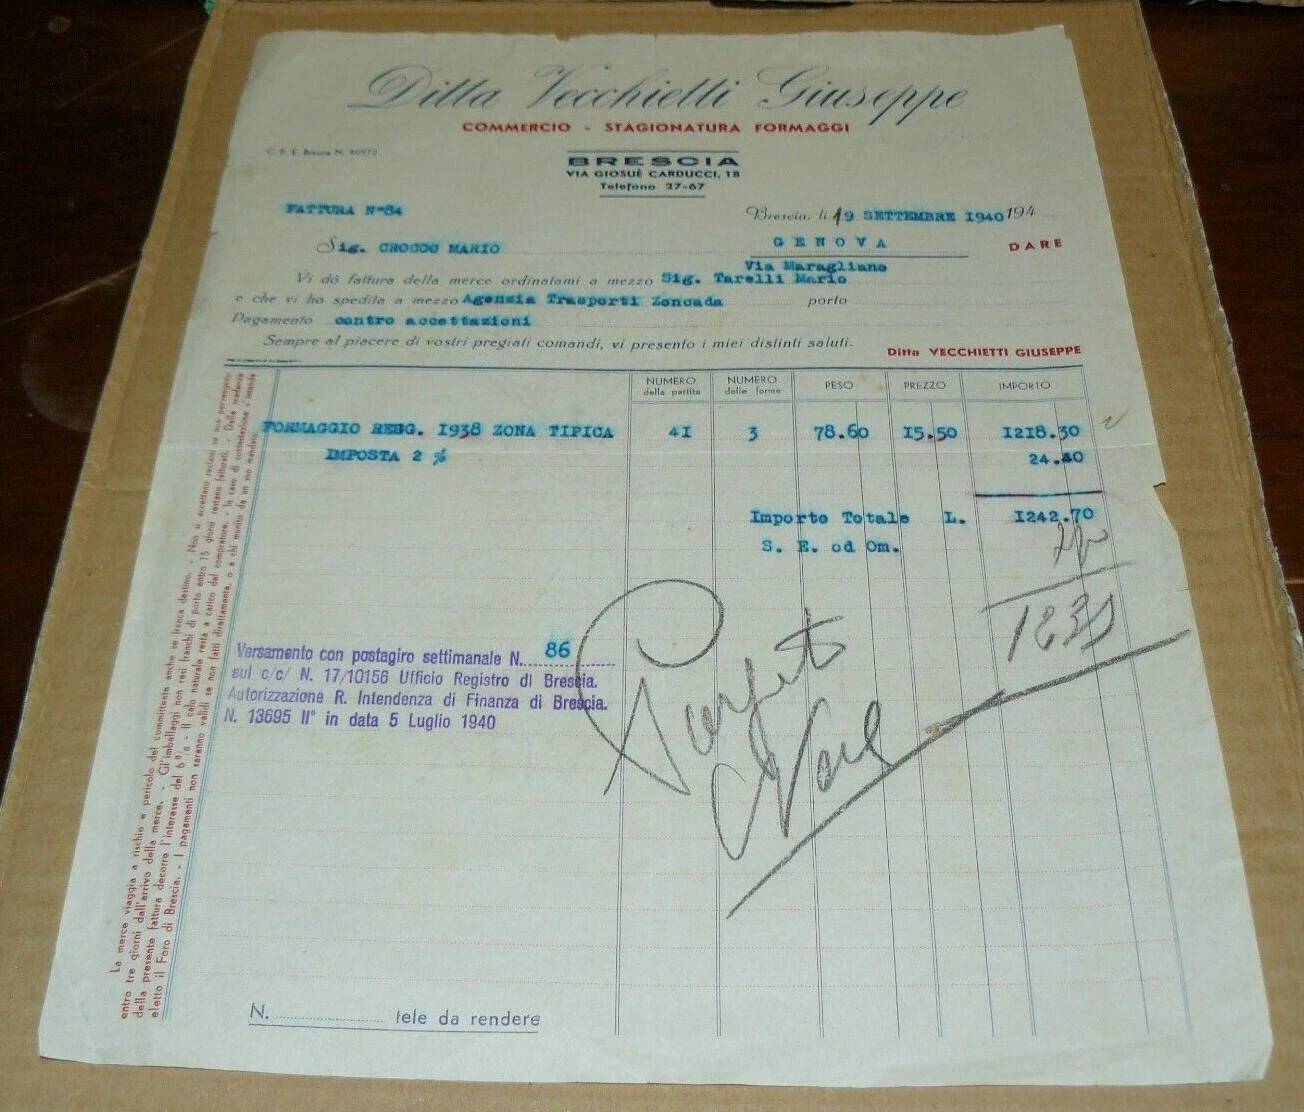 Ditta Vecchietti Giuseppe
COMMERCIO - STAGIONATURA FORMAGGI
C. P. E. Brescia N. 80973
BRESCIA
VIA GIOSUÈ CARDUCCI, 18
Telefono 27-67
FATTURA N°84
Brescia, li 19 SETTEMBRE 1940 194
Sig. CROCCO MARIO
GENOVA
DARE
Via Maragliano
Vi dò fattura della merce ordinatami a mezzo Sig. Tarelli Mario
e che vi ho spedita a mezzo Agenzia Trasporti Zoncada porto
Pagamento contro accettazioni
Sempre al piacere di vostri pregiati comandi, vi presento i miei distinti saluti.
Ditta VECCHIETTI GIUSEPPE
NUMERO della partita
NUMERO delle forme
PESO
PREZZO
IMPORTO
FORMAGGIO REGG. 1938 ZONA TIPICA 41 3 78.60 15.50 1218.30
IMPOSTA 2 % 24.40
Importo Totale L. 1242.70
S. E. od Om.
Versamento con postagiro settimanale N. 86
sul c/c/ N. 17/10156 Ufficio Registro di Brescia.
Autorizzazione R. Intendenza di Finanza di Brescia.
N. 13695 II° in data 5 Luglio 1940
La merce viaggia a rischio e pericolo del committente anche se franca destino. - Non si accettano reclami se non pervengono
entro tre giorni dall'arrivo della merce. - Gl'imballaggi non resi franchi di porto entro 15 giorni restano fatturati. - Dalla scadenza
della presente fattura decorre l'interesse del 6 % - Il calo naturale resta a carico del compratore. - In caso di contestazione s'intende
eletto il Foro di Brescia. - I pagamenti non saranno validi se non fatti direttamente, o a chi munito da un suo mandato.
N. tele da rendere